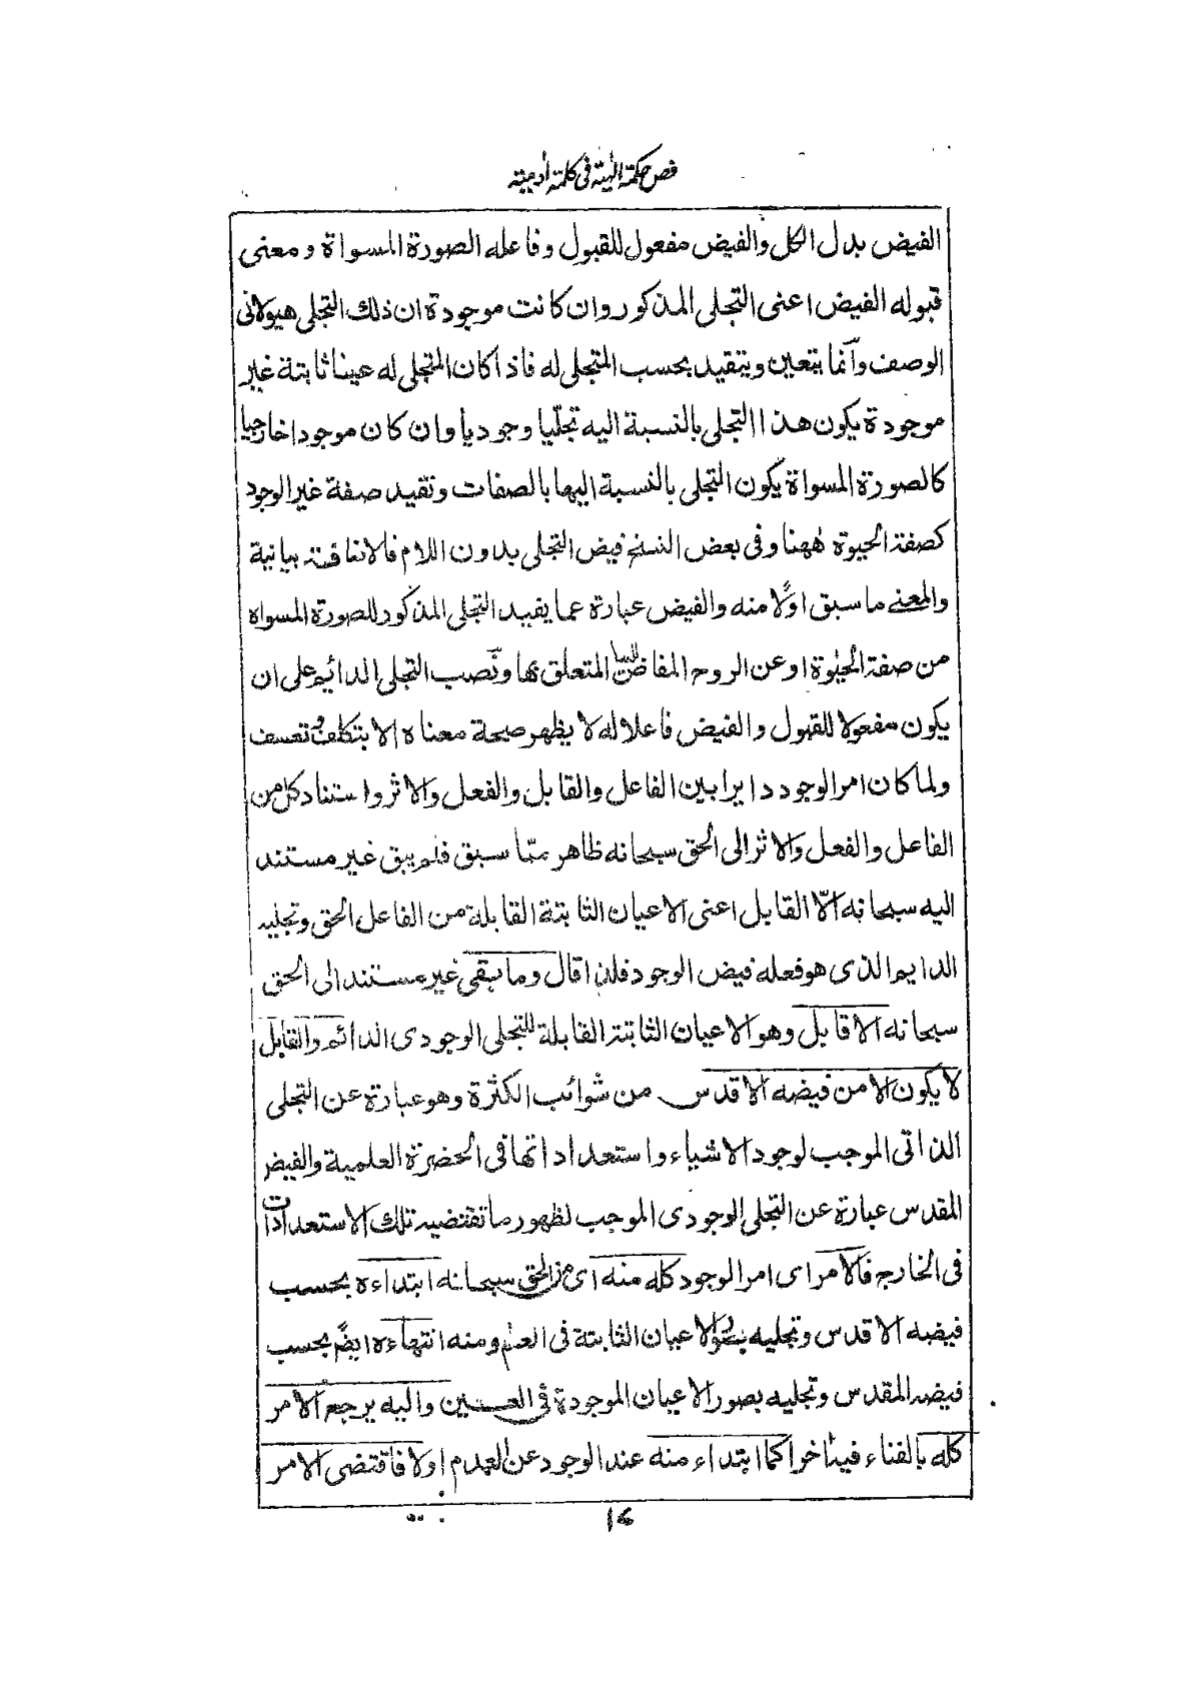 فص حكمة الهية في كلمة أدمية
الفيض بدل الكل والفيض مفعول للقبول وفاعله الصورة المسواة ومعنى
قبوله الفيض اعنى التجلى المذكور وان كانت موجودة ان ذلك التجلى هيولانى
الوصف وانما يتعين ويتقيد بحسب المتجلى له فاذا كان المتجلى له عينا ثابتة غير
موجودة يكون هذا التجلى بالنسبة اليه تجلّيا وجوديا وان كان موجودا خارجيا
كالصورة المسواة يكون التجلى بالنسبة اليها بالصفات وتقيد صفة غير الوجود
كصفة الحيوة ههنا وفى بعض النسخ فيض التجلى بدون اللام فالاضافة بيانية
والمعنى ما سبق اولًا منه والفيض عبارة عما يفيد التجلى المذكور للصورة المسواه
من صفة الحيوة او عن الروح المفاض المتعلق بها ونصب التجلى الدائم على ان
يكون مفعولا للقبول والفيض فاعلا له لا يظهر صحة معناه الا بتكلف وتعسف
ولما كان امر الوجود دايرا بين الفاعل والقابل والفعل والاثر واستناد كل من
الفاعل والفعل والاثر الى الحق سبحانه ظاهر ممّا سبق فلم يبق غير مستند
اليه سبحانه الّا القابل اعنى الاعيان الثابتة القابلة من الفاعل الحق وتجليه
الدايم الذى هو فعله فيض الوجود فلذا قال وما بقى غير مستند الى الحق
سبحانه الا قابل وهو الاعيان الثابتة القابلة للتجلى الوجودى الدائم والقابل
لا يكون الا من فيضه الاقدس من شوائب الكثرة وهو عبارة عن التجلى
الذاتى الموجب لوجود الاشياء واستعداداتها فى الحضرة العلمية والفيض
المقدس عبارة عن التجلى الوجودى الموجب لظهور ما تقتضيه تلك الاستعدادات
فى الخارج فالامر اى امر الوجود كله منه اى من الحق سبحانه ابتداءه بحسب
فيضه الاقدس وتجليه بصور الاعيان الثابتة فى العلم ومنه انتهاءه ايضً بحسب
فيضه المقدس وتجليه بصور الاعيان الموجودة فى العين واليه يرجع الامر
كله بالفناء فيه اخرا كما ابتداء منه عند الوجود عن العدم اولا فاقتضى الامر
١٤